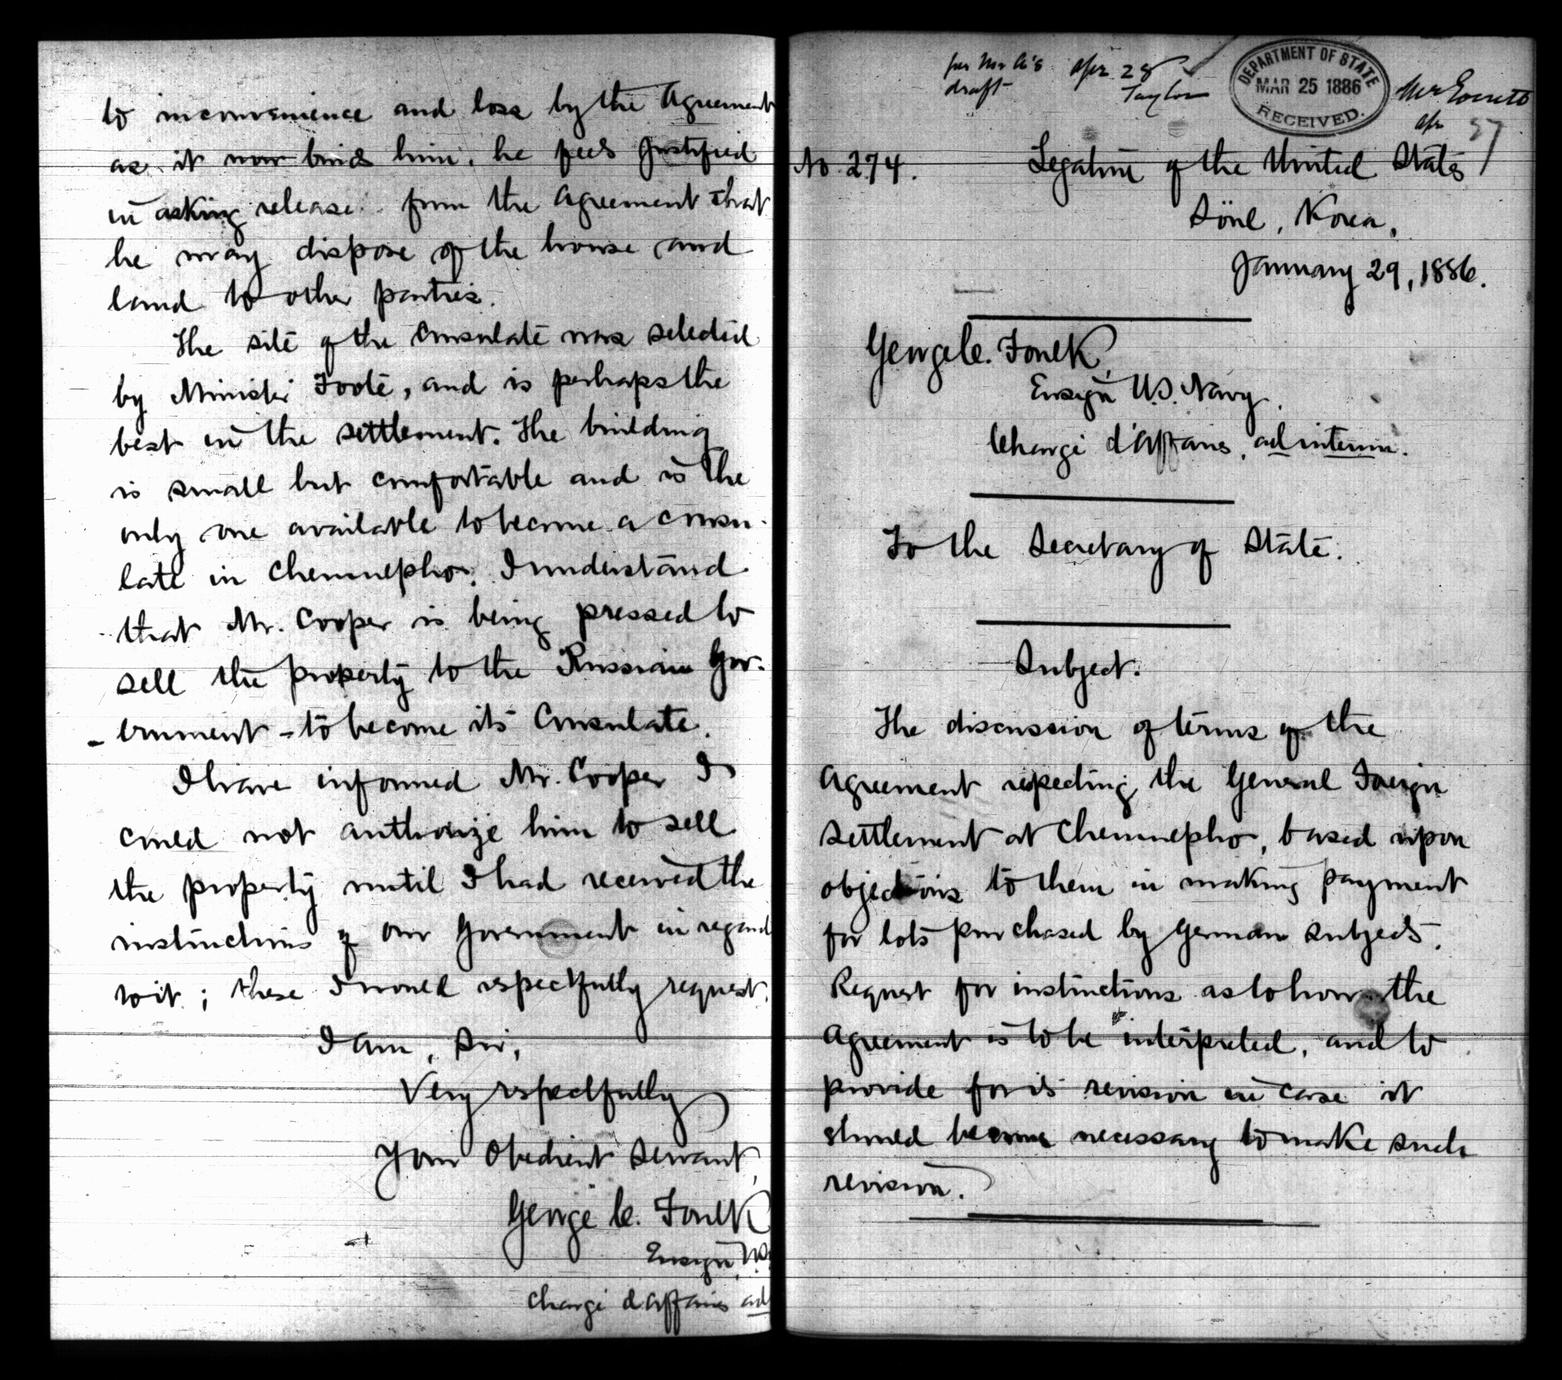 to inconvenience and loss by the Agreement
as it now binds him, he feels justified
in asking release from the Agreement that
he may dispose of the house and
land to other parties.
The site of the Consulate was selected
by Minister Foote, and is perhaps the
best in the settlement. The building
is small but comfortable and is the
only one available to become a consu-
late in Chemulpho. I understand
that Mr. Cooper is being pressed to
sell the property to the Russian Gov-
ernment - to become its Consulate.
I have informed Mr. Cooper I
could not authorize him to sell
the property until I had received the
instructions of our Government in regard
to it; these I would respectfully request.
I am, Sir,
Very respectfully
Your Obedient Servant,
George C. Foulk
Ensign U.S.
Chargé d'affaires ad
per Mr. A's
draft
Apr 28
Taylor
DEPARTMENT OF STATE
MAR 25 1886
RECEIVED.
Mr Everett
Apr 27
No. 274.
Legation of the United States
Söul, Korea,
January 29, 1886.
George C. Foulk,
Ensign U.S. Navy.
Chargé d'Affaires, ad interim.
To the Secretary of State.
Subject.
The discussion of terms of the
Agreement respecting the General Foreign
Settlement at Chemulpho, based upon
objections to them in making payment
for lots purchased by German subjects.
Request for instructions as to how the
Agreement is to be interpreted, and to
provide for its revision in case it
should become necessary to make such
revision.